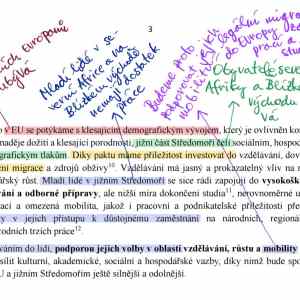 3
ších Evropanů
ubývá
Mladí lidé v se-
verní Africe a na
Blízkém východě
nemají dostatek
práce
Budeme proto
legální migra
do Evropy za
prací a stu
Obyvatelé seve
Afriky a Blízké
východu
vá
v EU se potýkáme s klesajícím demografickým vývojem, který je ovlivněn ko
naděje dožití a klesající porodností, jižní část Středomoří čelí sociálním, hospo
grafickým tlakům Díky paktu máme příležitost investovat do vzdělávání, dov
ní migrace a zdrojů obživy. Vzdělávání má jasný a prokazatelný vliv na r
ářský růst. Mladí lidé v jižním Středomoří se sice rádi zapojují do vysokošk
vání a odborné přípravy, ale nižší míra dokončení studia, nerovnoměrné u
ací a omezená mobilita, jakož i pracovní a podnikatelské příležitosti pře
y v jejich přístupu k důstojnému zaměstnání na národních, region
rodních trzích práce
váním do lidí, podporou jejich volby v oblasti vzdělávání, růstu a mobility
sílit kulturní, akademické, sociální a hospodářské vazby, díky nimž bude spo
U a jižním Středomořím ještě silnější a odolnější.